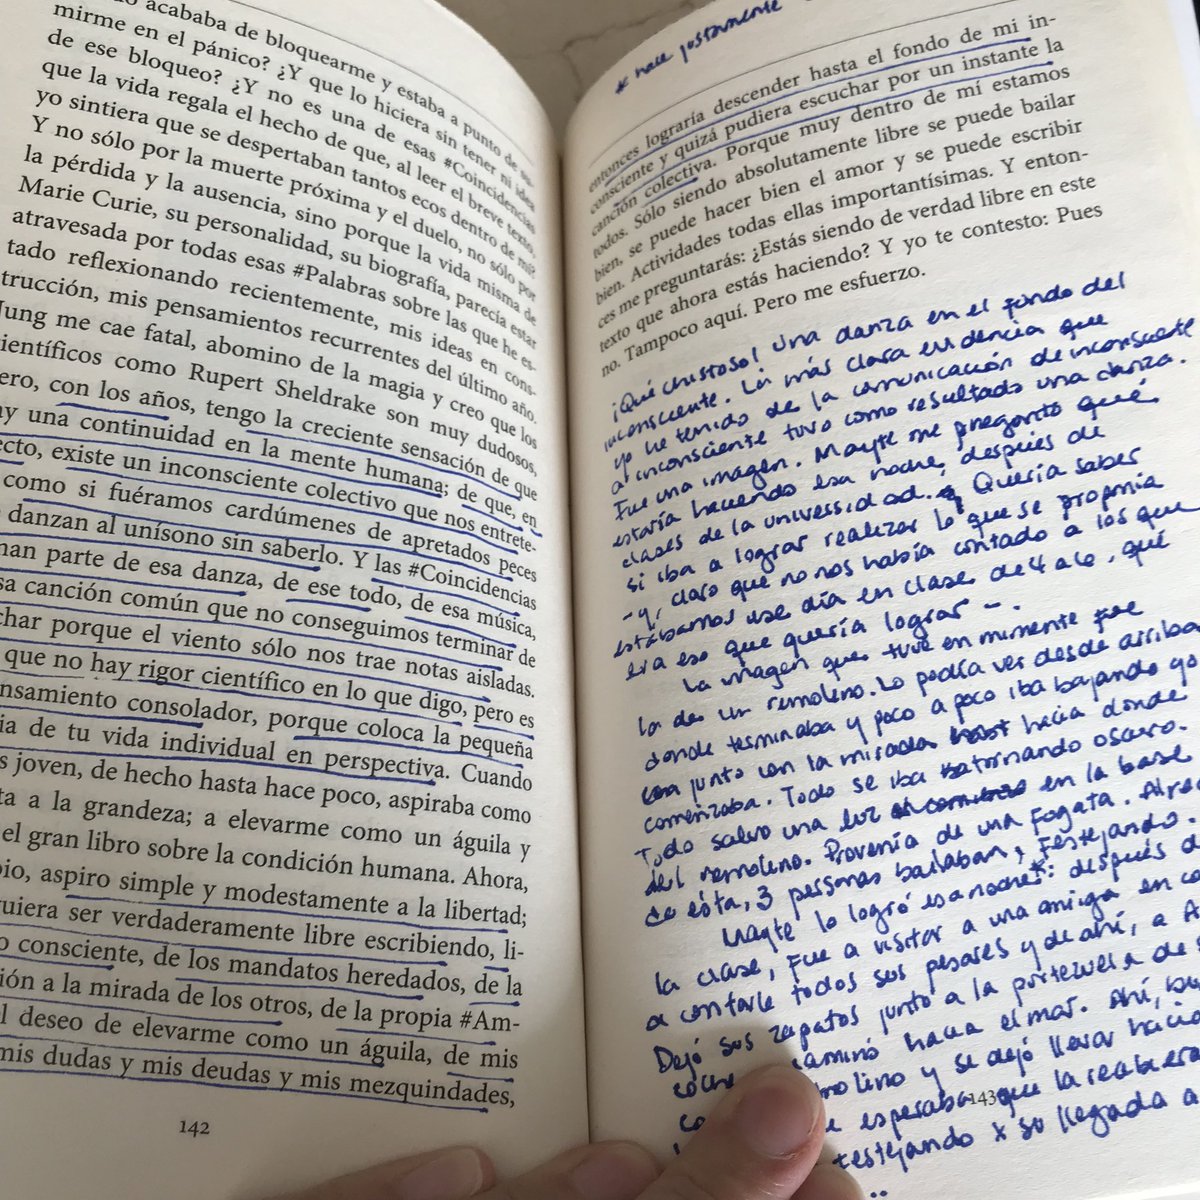 acababa de bloquearme y estaba a punto de su-
mirme en el pánico? ¿Y que lo hiciera sin tener ni idea
de ese bloqueo? ¿Y no es una de esas #Coincidencias
que la vida regala el hecho de que, al leer el breve texto,
yo sintiera que se despertaban tantos ecos dentro de mí?
Y no sólo por la muerte próxima y el duelo, no sólo por
la pérdida y la ausencia, sino porque la vida misma de
Marie Curie, su personalidad, su biografía, parecía estar
atravesada por todas esas #Palabras sobre las que he es-
tado reflexionando recientemente, mis ideas en cons-
trucción, mis pensamientos recurrentes del último año.
Jung me cae fatal, abomino de la magia y creo que los
científicos como Rupert Sheldrake son muy dudosos,
pero, con los años, tengo la creciente sensación de que
hay una continuidad en la mente humana; de que, en
efecto, existe un inconsciente colectivo que nos entrete-
como si fuéramos cardúmenes de apretados peces
danzan al unísono sin saberlo. Y las #Coincidencias
forman parte de esa danza, de ese todo, de esa música,
esa canción común que no conseguimos terminar de
escuchar porque el viento sólo nos trae notas aisladas.
que no hay rigor científico en lo que digo, pero es
pensamiento consolador, porque coloca la pequeña
de tu vida individual en perspectiva. Cuando
joven, de hecho hasta hace poco, aspiraba como
a la grandeza; a elevarme como un águila y
el gran libro sobre la condición humana. Ahora,
aspiro simple y modestamente a la libertad;
ser verdaderamente libre escribiendo, li-
consciente, de los mandatos heredados, de la
a la mirada de los otros, de la propia #Am-
deseo de elevarme como un águila, de mis
mis dudas y mis deudas y mis mezquindades,
142
* hace justamente
entonces lograría descender hasta el fondo de mi in-
consciente y quizá pudiera escuchar por un instante la
canción colectiva. Porque muy dentro de mí estamos
todos. Sólo siendo absolutamente libre se puede bailar
bien, se puede hacer bien el amor y se puede escribir
bien. Actividades todas ellas importantísimas. Y enton-
ces me preguntarás: ¿Estás siendo de verdad libre en este
texto que ahora estás haciendo? Y yo te contesto: Pues
no. Tampoco aquí. Pero me esfuerzo.
¡Qué chistoso! Una danza en el fondo del
inconsciente. La más clara evidencia que
yo he tenido de la comunicación de inconsciente
a inconsciente tuvo como resultado una danza.
Fue una imagen. Mayte me preguntó qué
estaría haciendo esa noche, después de
clases de la universidad. Quería saber
si iba a lograr realizar lo que se proponía
- y, claro que no nos había contado a los que
estábamos ese día en clase de 4 a 6, qué
era eso que quería lograr -.
La imagen que tuve en mi mente fue
la de un remolino. Lo podía ver desde arriba
donde terminaba y poco a poco iba bajando yo
con junto con la mirada hacia donde
comenzaba. Todo se iba tornando oscuro.
Todo salvo una luz en la base
del remolino. Provenía de una fogata. Alrede
de ésta, 3 personas bailaban, festejando.
Mayte lo logró esa noche*: después de
la clase, fue a visitar a una amiga
a contarle todos sus pesares y de ahí, a
Dejó sus zapatos junto a la portezuela de
caminó hacia el mar. Ahí,
y se dejó llevar hacia
esperaba que la recibiera
143
festejando x su llegada a